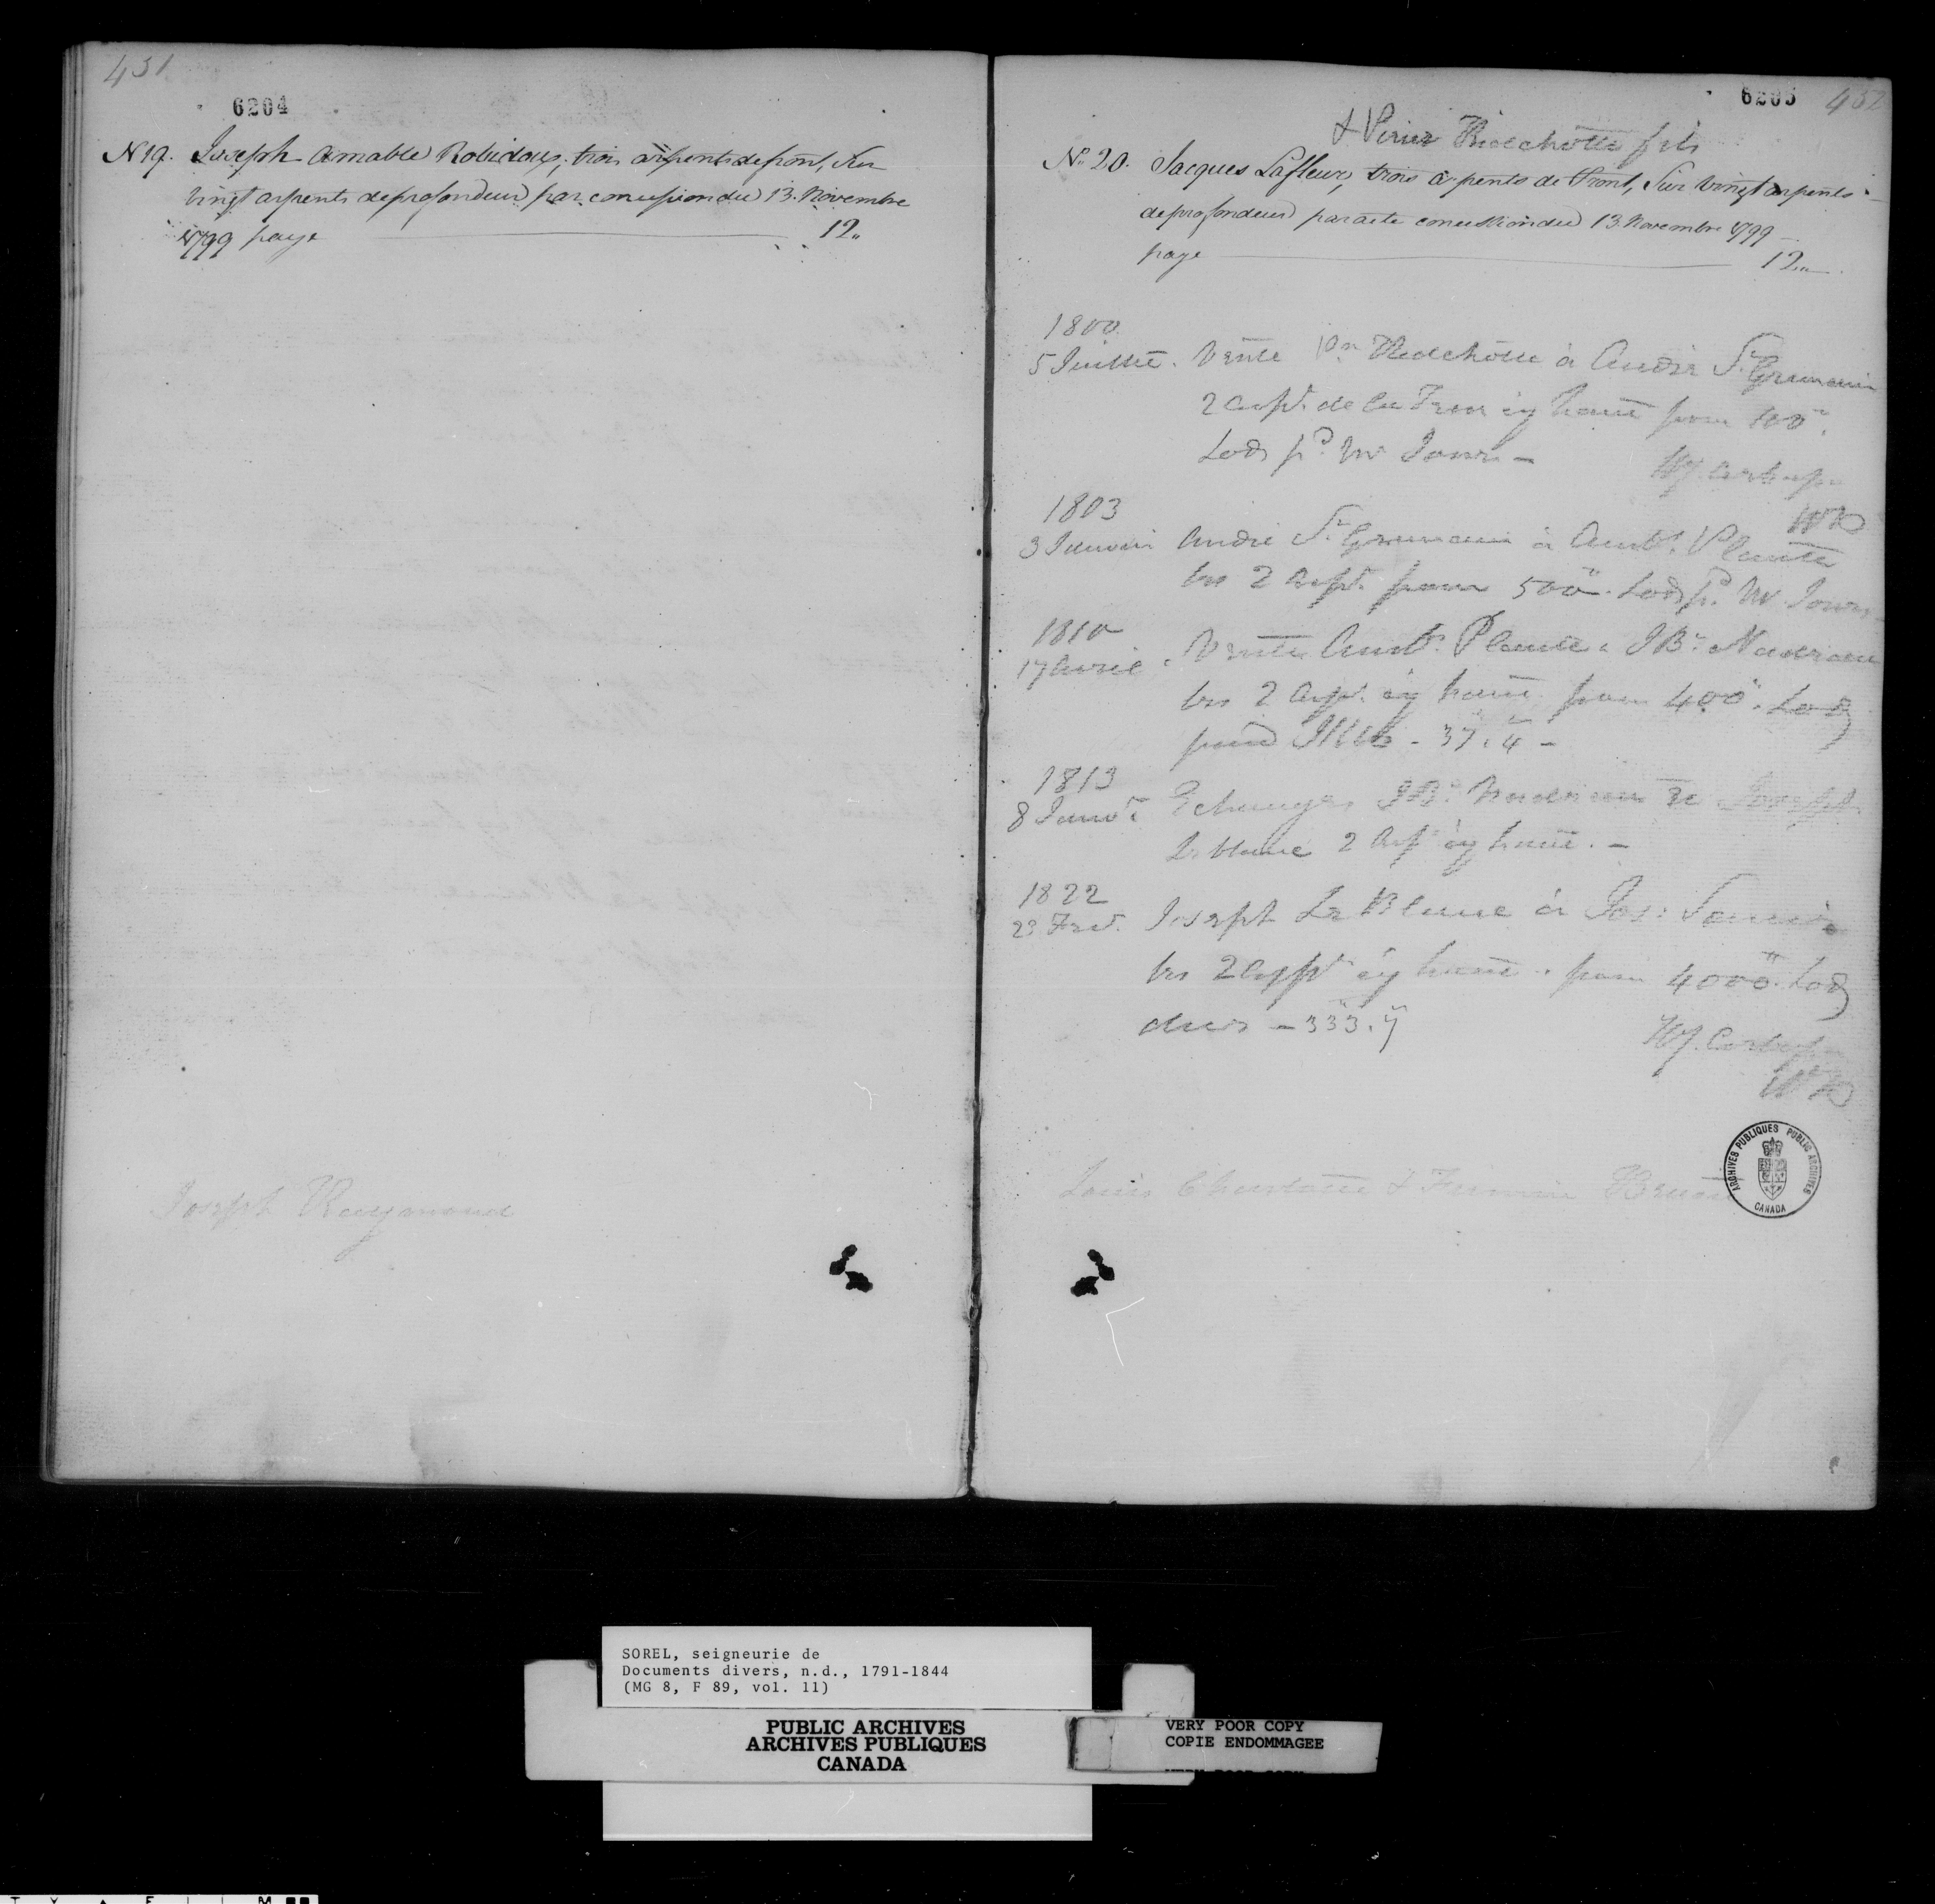 431
6204
N 19. Joseph Amable Robidoux, trois arpents de front, sur
vingt arpents de profondeur par concession du 13. Novembre
1799 paye 12"
Joseph Raymond
6205 432
& Pierre fils
No. 20. Jacques Lafleur, trois arpents de front, Sur vingt arpents
de profondeur par acte concession du 13. Novembre 1799
paye 12"
1800
5 Juillet. Vente Pre à André St Germain
2 arpt. de la Terre cy haut pour
Lods pd. Mr Jones -
1803
3 Janvier André St Germain à Ambs. Plante
les 2 Arpt. pour 500". Lods pd. Mr Jones
1810
17 Avril. Vente Ambs. Plante à J Bte. Nadreau
les 2 Arpt. cy haut pour 400". Lods
paid - 37.4 -
1813
8 Janvr. Echange J B. Nadreau & Joseph
Le blanc 2 Arp cy haut. -
1822
23 Fev. Joseph Le Blanc à Jos:
les 2 Arpt cy haut. pour 4000". Lods
dues - 333.7
Louis & Firmin
ARCHIVES PUBLIQUES PUBLIC ARCHIVES
CANADA
SOREL, seigneurie de
Documents divers, n.d., 1791-1844
(MG 8, F 89, vol. 11)
PUBLIC ARCHIVES
ARCHIVES PUBLIQUES
CANADA
VERY POOR COPY
COPIE ENDOMMAGEE